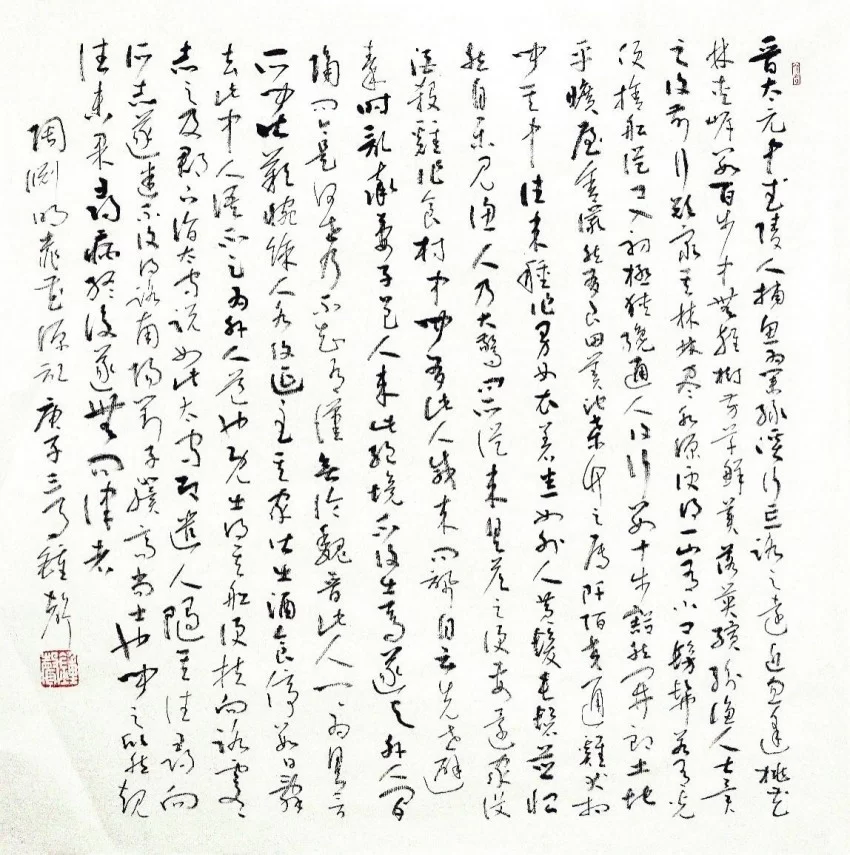 晉太元中武陵人捕魚為業緣溪行忘路之遠近忽逢桃花
林夾岸數百步中無雜樹芳草鮮美落英繽紛漁人甚異
之復前行欲窮其林林盡水源便得一山有小口髣髴若有光
便捨船從口入初極狹纔通人復行數十步豁然開朗土地
平曠屋舍儼然有良田美池桑竹之屬阡陌交通雞犬相
聞其中往來種作男女衣著悉如外人黃髮垂髫並怡
然自樂見漁人乃大驚問所從來具答之便要還家設
酒殺雞作食村中聞有此人咸來問訊自云先世避
秦時亂率妻子邑人來此絕境不復出焉遂與外人間
隔問今是何世乃不知有漢無論魏晉此人一一為具言
所聞皆歎惋餘人各復延至其家皆出酒食停數日辭
去此中人語不足為外人道也既出得其船便扶向路處處
志之及郡下詣太守說如此太守即遣人隨其往尋向
所志遂迷不復得路南陽劉子驥高尚士也聞之欣然規
往未果尋病終後遂無問津者
陶淵明桃花源記庚子